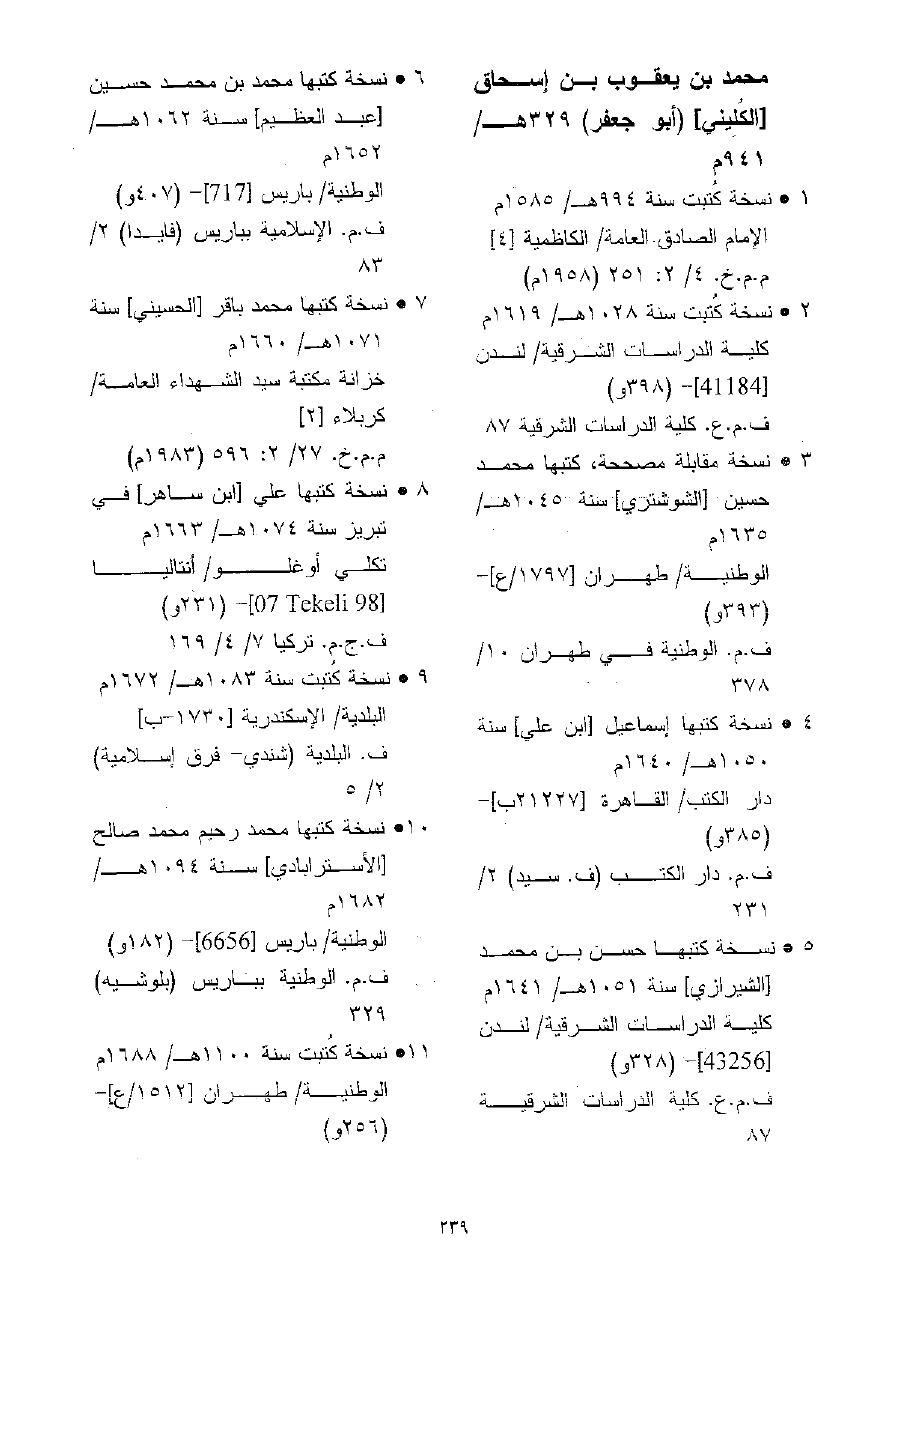 محمد بن يعقوب بن إسحاق
[الكُليني] (أبو جعفر) ٣٢٩هـ/
٩٤١م
١ • نسخة كُتبت سنة ٩٩٤هـ/ ١٥٨٥م
الإمام الصادق العامة/ الكاظمية [٤]
م.م.خ. ٤/ ٢: ٢٥١ (١٩٥٨م)
٢ • نسخة كُتبت سنة ١٠٢٨هـ/ ١٦١٩م
كلية الدراسات الشرقية/ لندن
[41184]- (٣٩٨و)
ف.م.ع. كلية الدراسات الشرقية ٨٧
٣ • نسخة مقابلة مصححة، كتبها محمد
حسين [الشوشتري] سنة ١٠٤٥هـ/
١٦٣٥م
الوطنية/ طهران [١٧٩٧/ع]-
(٣٩٣و)
ف.م. الوطنية في طهران ١٠/
٣٧٨
٤ • نسخة كتبها إسماعيل [ابن علي] سنة
١٠٥٠هـ/ ١٦٤٠م
دار الكتب/ القاهرة [٢١٢٢٧ب]-
(٣٨٥و)
ف.م. دار الكتب (ف. سيد) ٢/
٢٣١
٥ • نسخة كتبها حسن بن محمد
[الشيرازي] سنة ١٠٥١هـ/ ١٦٤١م
كلية الدراسات الشرقية/ لندن
[43256]- (٣٢٨و)
ف.م.ع. كلية الدراسات الشرقية
٨٧
٦ • نسخة كتبها محمد بن محمد حسين
[عبد العظيم] سنة ١٠٦٢هـ/
١٦٥٢م
الوطنية/ باريس [717]- (٤٠٧و)
ف.م. الإسلامية بباريس (فايدا) ٢/
٨٣
٧ • نسخة كتبها محمد باقر [الحسيني] سنة
١٠٧١هـ/ ١٦٦٠م
خزانة مكتبة سيد الشهداء العامة/
كربلاء [٢]
م.م.خ. ٢٧/ ٢: ٥٩٦ (١٩٨٣م)
٨ • نسخة كتبها علي [ابن ساهر] في
تبريز سنة ١٠٧٤هـ/ ١٦٦٣م
تكلي أوغلو/ أنتاليا
[07 Tekeli 98]- (٢٣١و)
ف.ج.م. تركيا ٧/ ٤/ ١٦٩
٩ • نسخة كُتبت سنة ١٠٨٣هـ/ ١٦٧٢م
البلدية/ الإسكندرية [١٧٣٠-ب]
ف. البلدية (شندي- فرق إسلامية)
٢/ ٥
١٠• نسخة كتبها محمد رحيم محمد صالح
[الأسترابادي] سنة ١٠٩٤هـ/
١٦٨٢م
الوطنية/ باريس [6656]- (١٨٢و)
ف.م. الوطنية بباريس (بلوشيه)
٣٢٩
١١• نسخة كُتبت سنة ١١٠٠هـ/ ١٦٨٨م
الوطنية/ طهران [١٥١٢/ع]-
(٢٥٦و)
٢٣٩